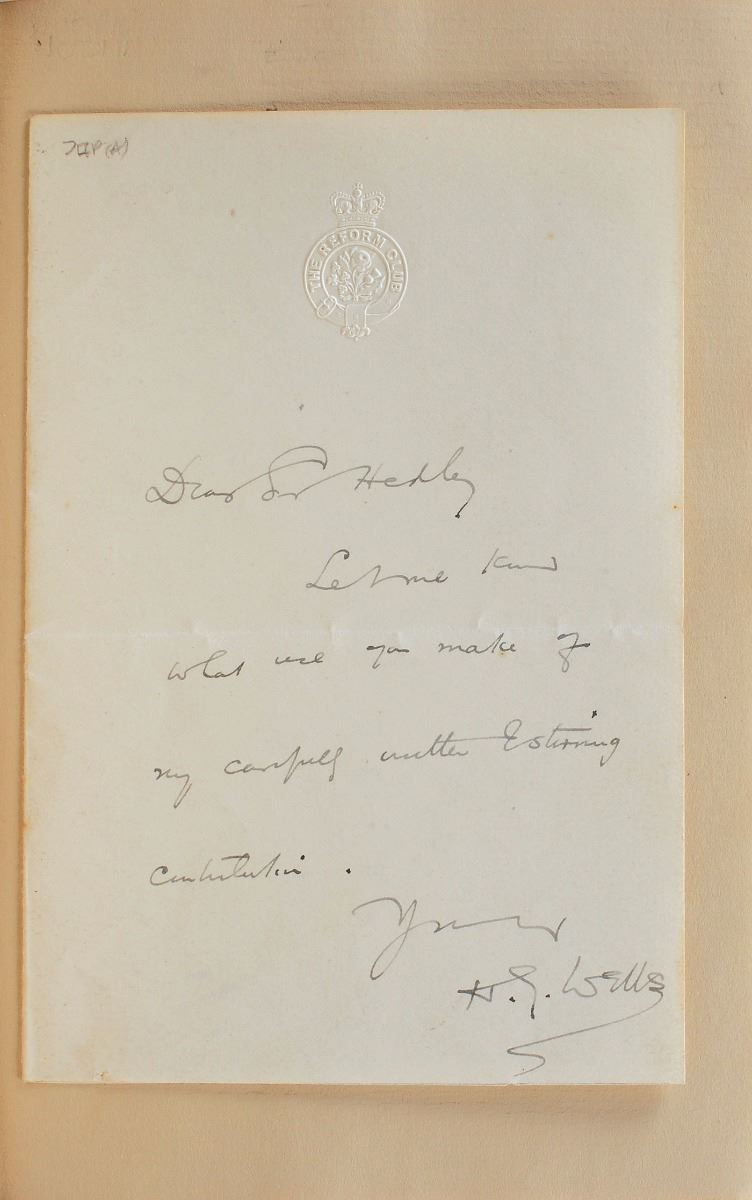 THE REFORM CLUB
Dear Sir Hedley
Let me know
what use you make of
my carefully written & stirring
contribution.
Yours
H. G. Wells